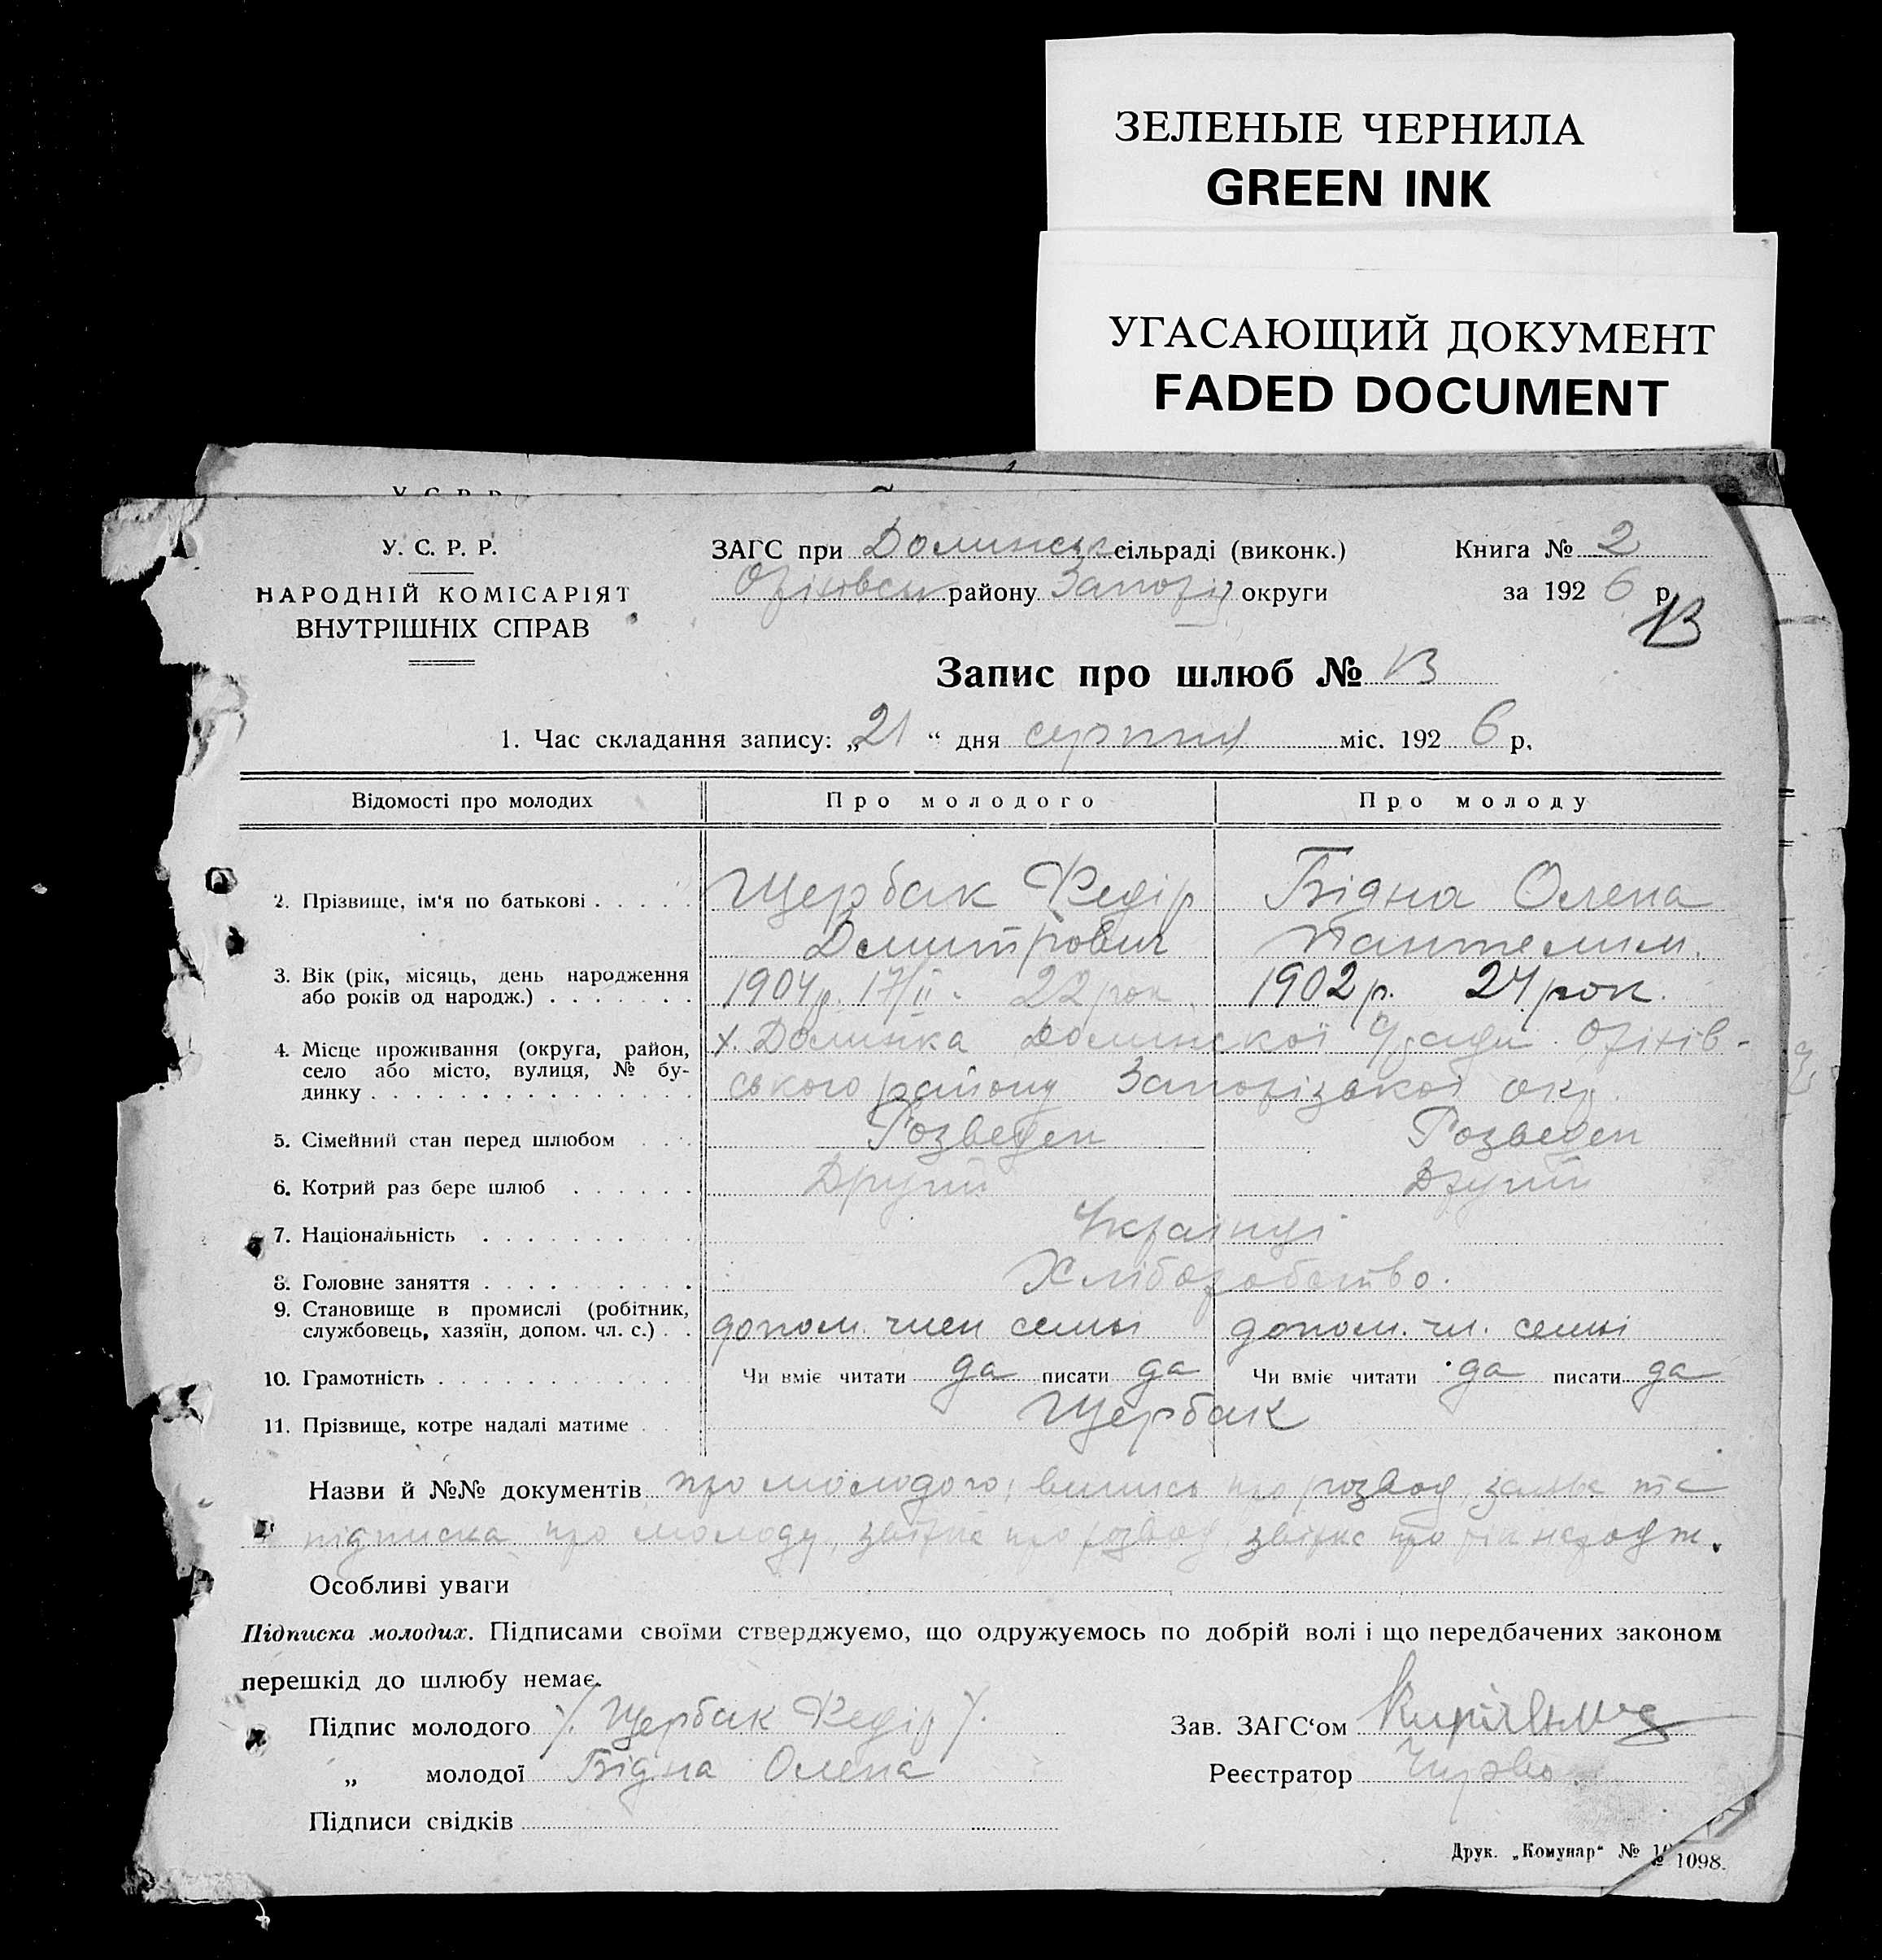 ЗЕЛЕНЫЕ ЧЕРНИЛА
GREEN INK
УГАСАЮЩИЙ ДОКУМЕНТ
FADED DOCUMENT
У. С. Р. Р.
НАРОДНІЙ КОМІСАРІЯТ
ВНУТРІШНІХ СПРАВ
ЗАГС при Долинськ сільраді (виконк.) Книга № 2
Оріхівськ району Запоріз округи за 192 6 р.
13
Запис про шлюб № 13
1. Час складання запису: „21“ дня серпня міс. 192 6 р.
Відомості про молодих Про молодого Про молоду
2. Прізвище, ім‘я по батькові Щербак Федір Бідна Олена
Дмитрович Пантелим.
3. Вік (рік, місяць, день народження
або років од народж.) 1904 р. 17/II. 22 рок. 1902 р. 24 рок.
4. Місце проживання (округа, район, х. Долинка Долинської С/ради Оріхів-
село або місто, вулиця, № бу-
динку ського району Запорізької окр.
5. Сімейний стан перед шлюбом Розведен Розведен
6. Котрий раз бере шлюб Другий Другий
7. Національність Українці
8. Головне заняття Хліборобство.
9. Становище в промислі (робітник,
службовець, хазяїн, допом. чл. с.) допом. член семьі допом. чл. семьі
10. Грамотність Чи вміє читати да писати да Чи вміє читати да писати да
11. Прізвище, котре надалі матиме Щербак
Назви й №№ документів про молодого, випись про розвод, заява та
підписка про молоду, звітка про розвод, звітка про рік народж.
Особливі уваги
Підписка молодих. Підписами своїми стверджуємо, що одружуємось по добрій волі і що передбачених законом
перешкід до шлюбу немає.
Підпис молодого /. Щербак Федір /. Зав. ЗАГС‘ом
„ молодої Бідна Олена Реєстратор
Підписи свідків
Друк. „Комунар“ № 1098.